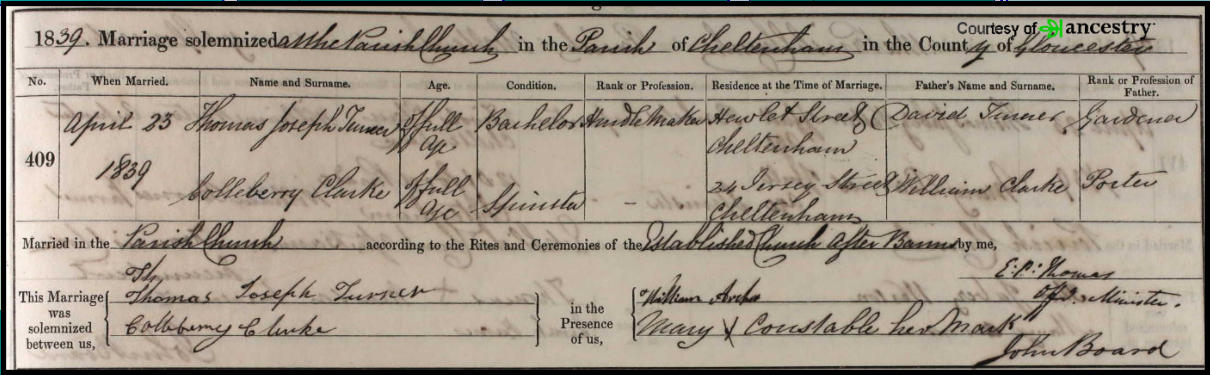 Courtesy of ancestry
1839. Marriage solemnized at the Parish Church in the Parish of Cheltenham in the County of Gloucester
No. When Married. Name and Surname. Age. Condition. Rank or Profession. Residence at the Time of Marriage. Father's Name and Surname. Rank or Profession of Father.
409
April 23 1839
Thomas Joseph Turner of full Age Bachelor Hurdle Maker Hewlet Street Cheltenham David Turner Gardener
Colleberry Clarke of full Age Spinster – 24 Jersey Street Cheltenham William Clarke Porter
Married in the Parish Church according to the Rites and Ceremonies of the Established Church After Banns by me,
E. P. Thomas
Offg. Minister.
This Marriage was solemnized between us,
Th
Thomas Joseph Turner
Colleberry Clarke
in the Presence of us,
William Archer
Mary X Constable her Mark
John Board